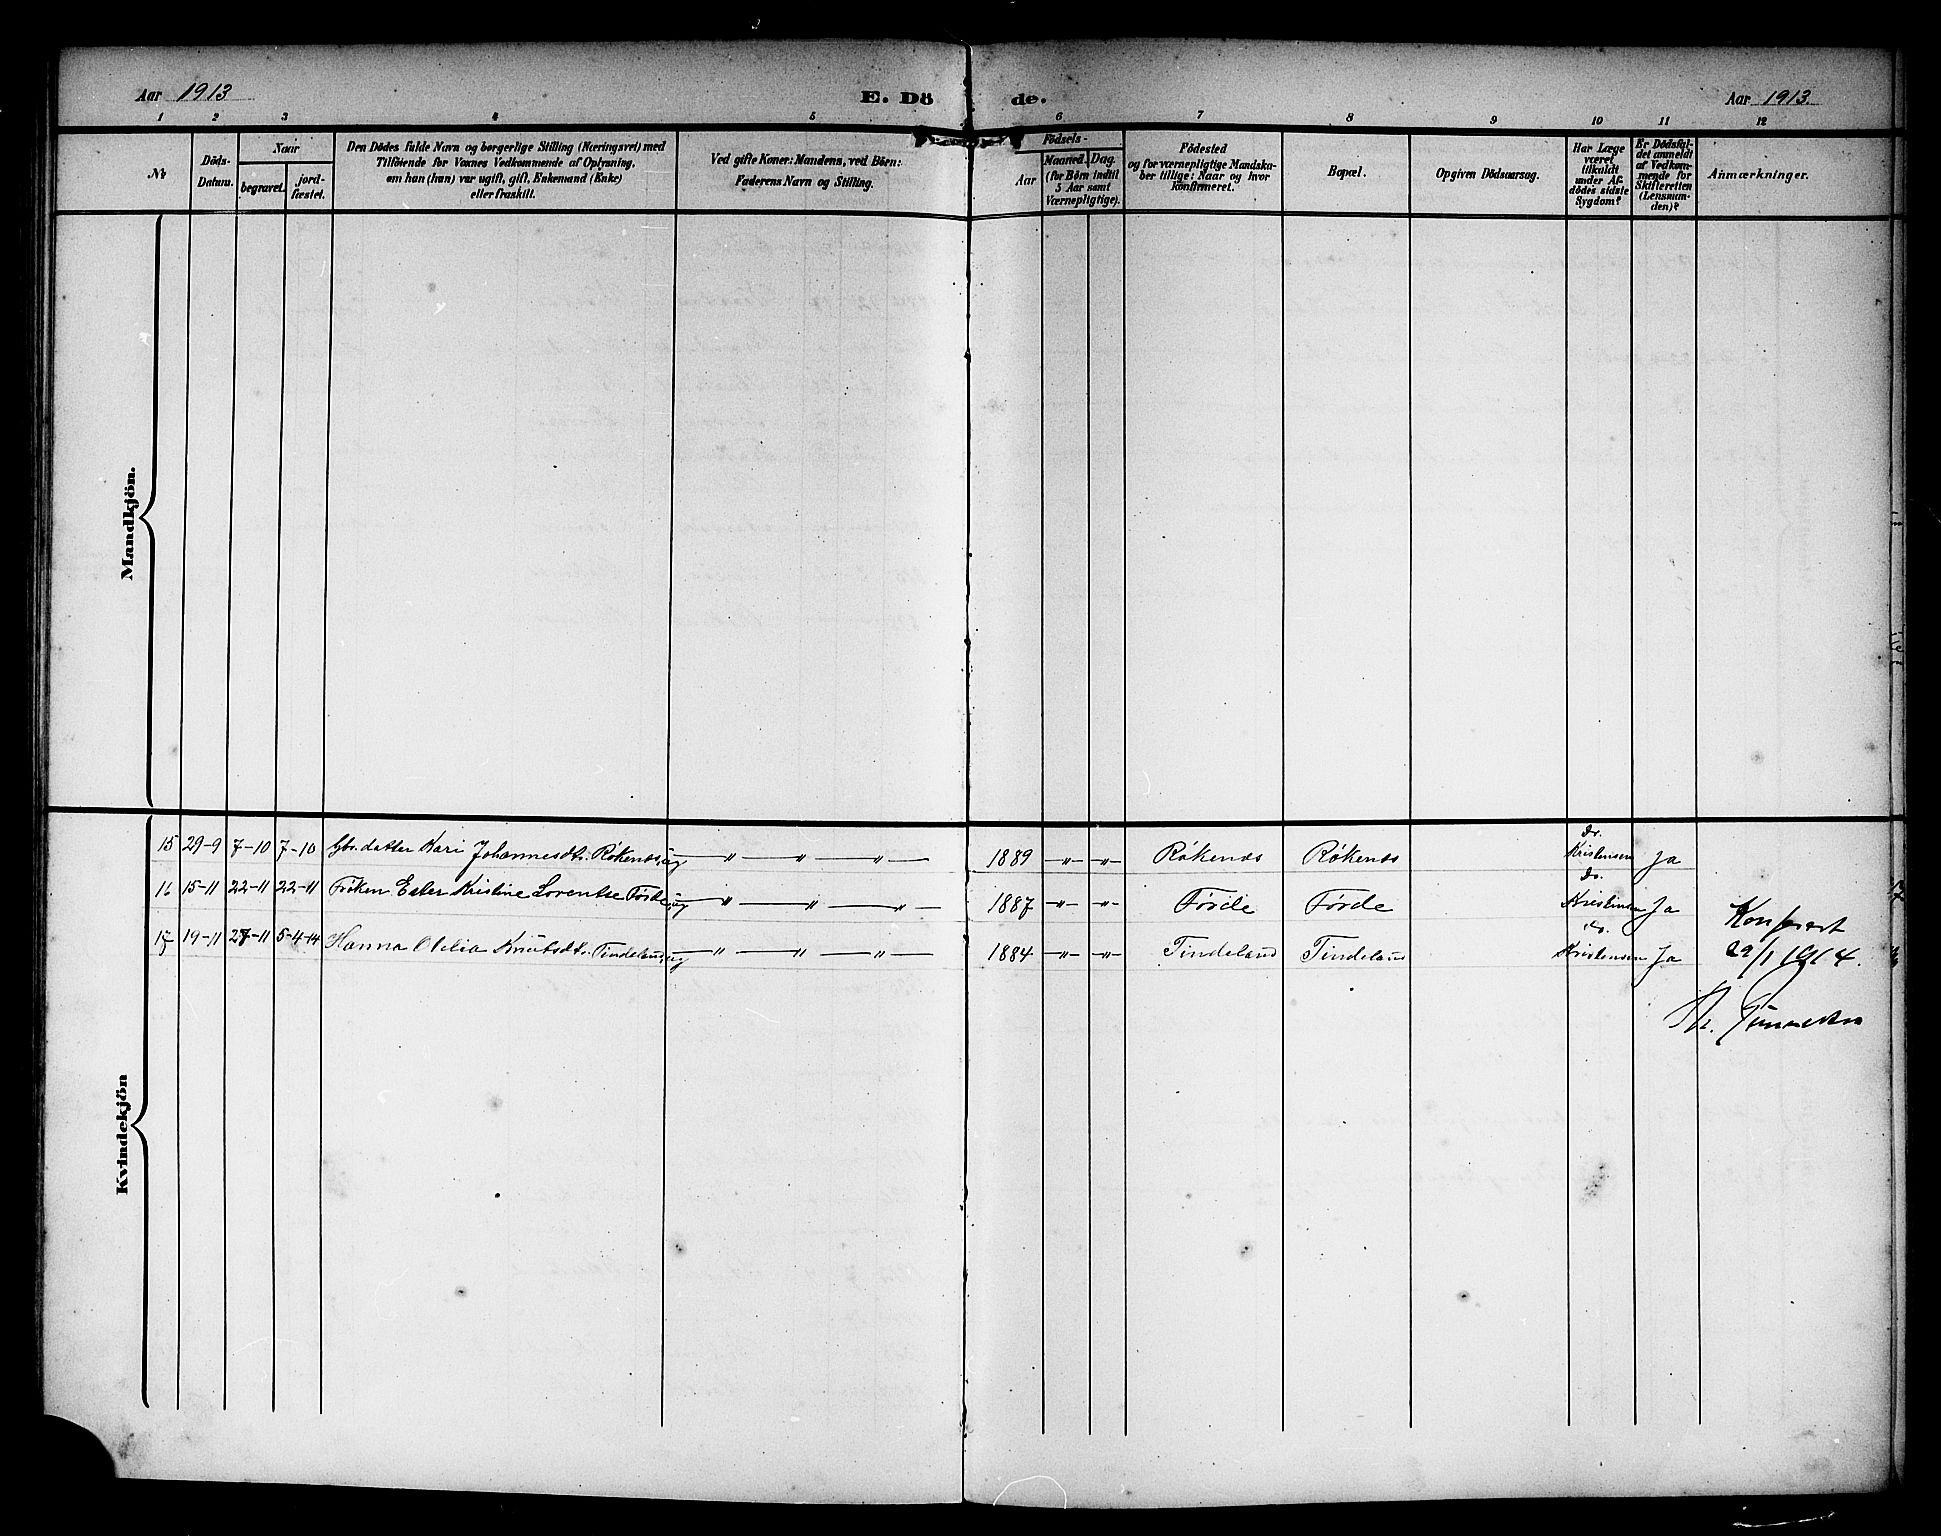 Aar 1913
E. Dö
de.
Aar 1913.
1 2 3 4 5 6 7 8 9 10 11 12
No
Döds-
Datum.
Naar
begravet.
jord-
fæstet.
Den Dödes fulde Navn og borgerlige Stilling (Næringsvei) med
Tilföiende for Voxnes Vedkommende af Oplysning,
om han (hun) var ugift, gift, Enkemand (Enke)
eller fraskilt.
Ved gifte Koner: Mandens, ved Börn:
Faderens Navn og Stilling.
Födsels-
Aar
Maaned.
Dag.
(for Börn indtil
5 Aar samt
Værnepligtige).
Födested
og for værnepligtige Mandska-
ber tillige: Naar og hvor
konfirmeret.
Bopæl.
Opgiven Dödsaarsag.
Har Læge
været
tilkaldt
under Af-
dödes sidste
Sygdom?
Er Dödsfal-
det anmeldt
af Vedkom-
mende for
Skifteretten
(Lensman-
den)?
Anmærkninger.
Mandkjön.
Kvindekjön
15 29-9 7-10 7-10 Gbr.datter Kari Johannesdt. Røkenes, ug — " — " — " — 1889 -"- -"- Røkenes Røkenes Dr. Kristensen Ja
16 15-11 22-11 22-11 Frøken Ester Kristine Lorentse Førde, ug — " — " — " — 1887 -"- -"- Førde Førde Dr. Kristensen Ja
17 19-11 27-11 5-4-14 Hanna Otilia Knutsdt. Tindeland, ug — " — " — " — 1884 -"- -"- Tindeland Tindeland Dr. Kristensen Ja
Konferert
29/1 1914.